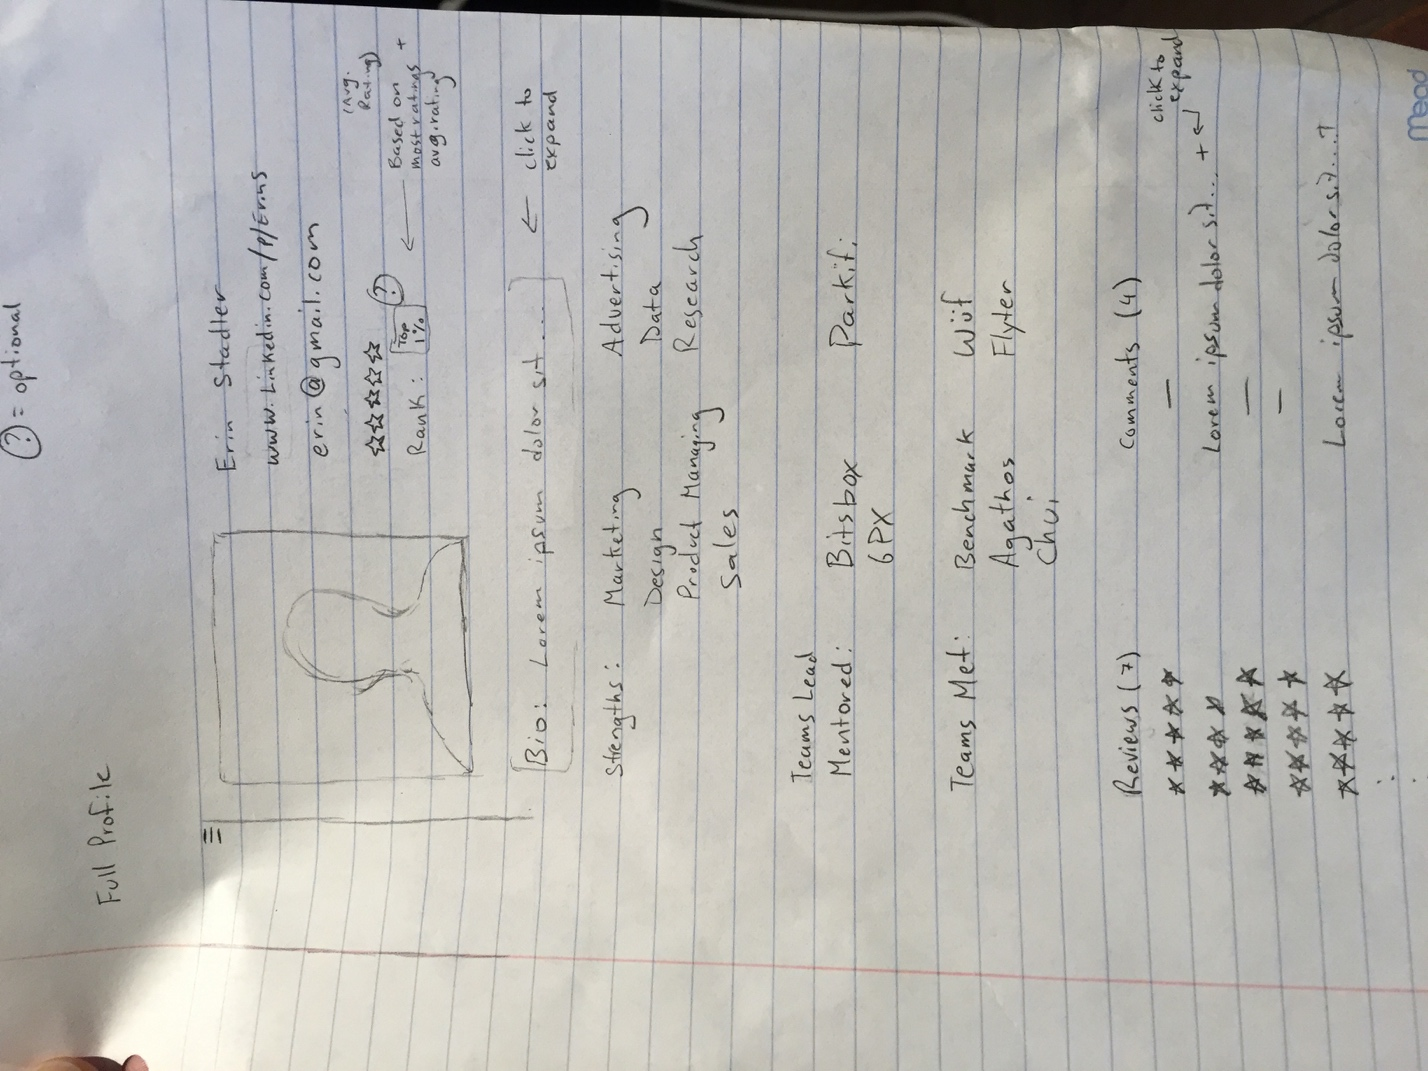 ? = optional
Full Profile
Erin Stadler
www.Linkedin.com/p/Erins
erin@gmail.com
(Avg. Rating)
Rank: Top 1% ?
← Based on most ratings + avg. rating
Bio: Lorem ipsum dolor sit....
← click to expand
Strengths: Marketing Advertising
Design Data
Product Managing Research
Sales
Teams Lead
Mentored: Bitsbox Parkifi
6PX
Teams Met: Benchmark Wüf
Agathos Flyter
Chui
Reviews (7) Comments (4)
click to expand
—
Lorem ipsum dolor sit... +
—
—
Lorem ipsum dolor sit....+
Mead